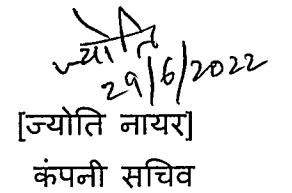 ज्योति
29/6/2022
[ज्योति नायर]
कंपनी सचिव